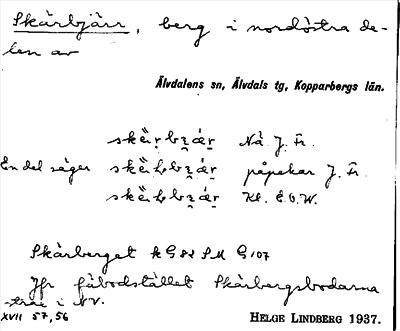 Skärbjärr, berg i nordöstra de-
len av
Älvdalens sn, Älvdals tg, Kopparbergs län.
Nä J. Fr.
En del säger påpekar J. Fr.
Kl. E.O.W.
Skärberget k G 82 S M G 107
Jfr fäbodstället Skärbergsbodarna
strax i NV.
XVII 57,56 HELGE LINDBERG 1937.